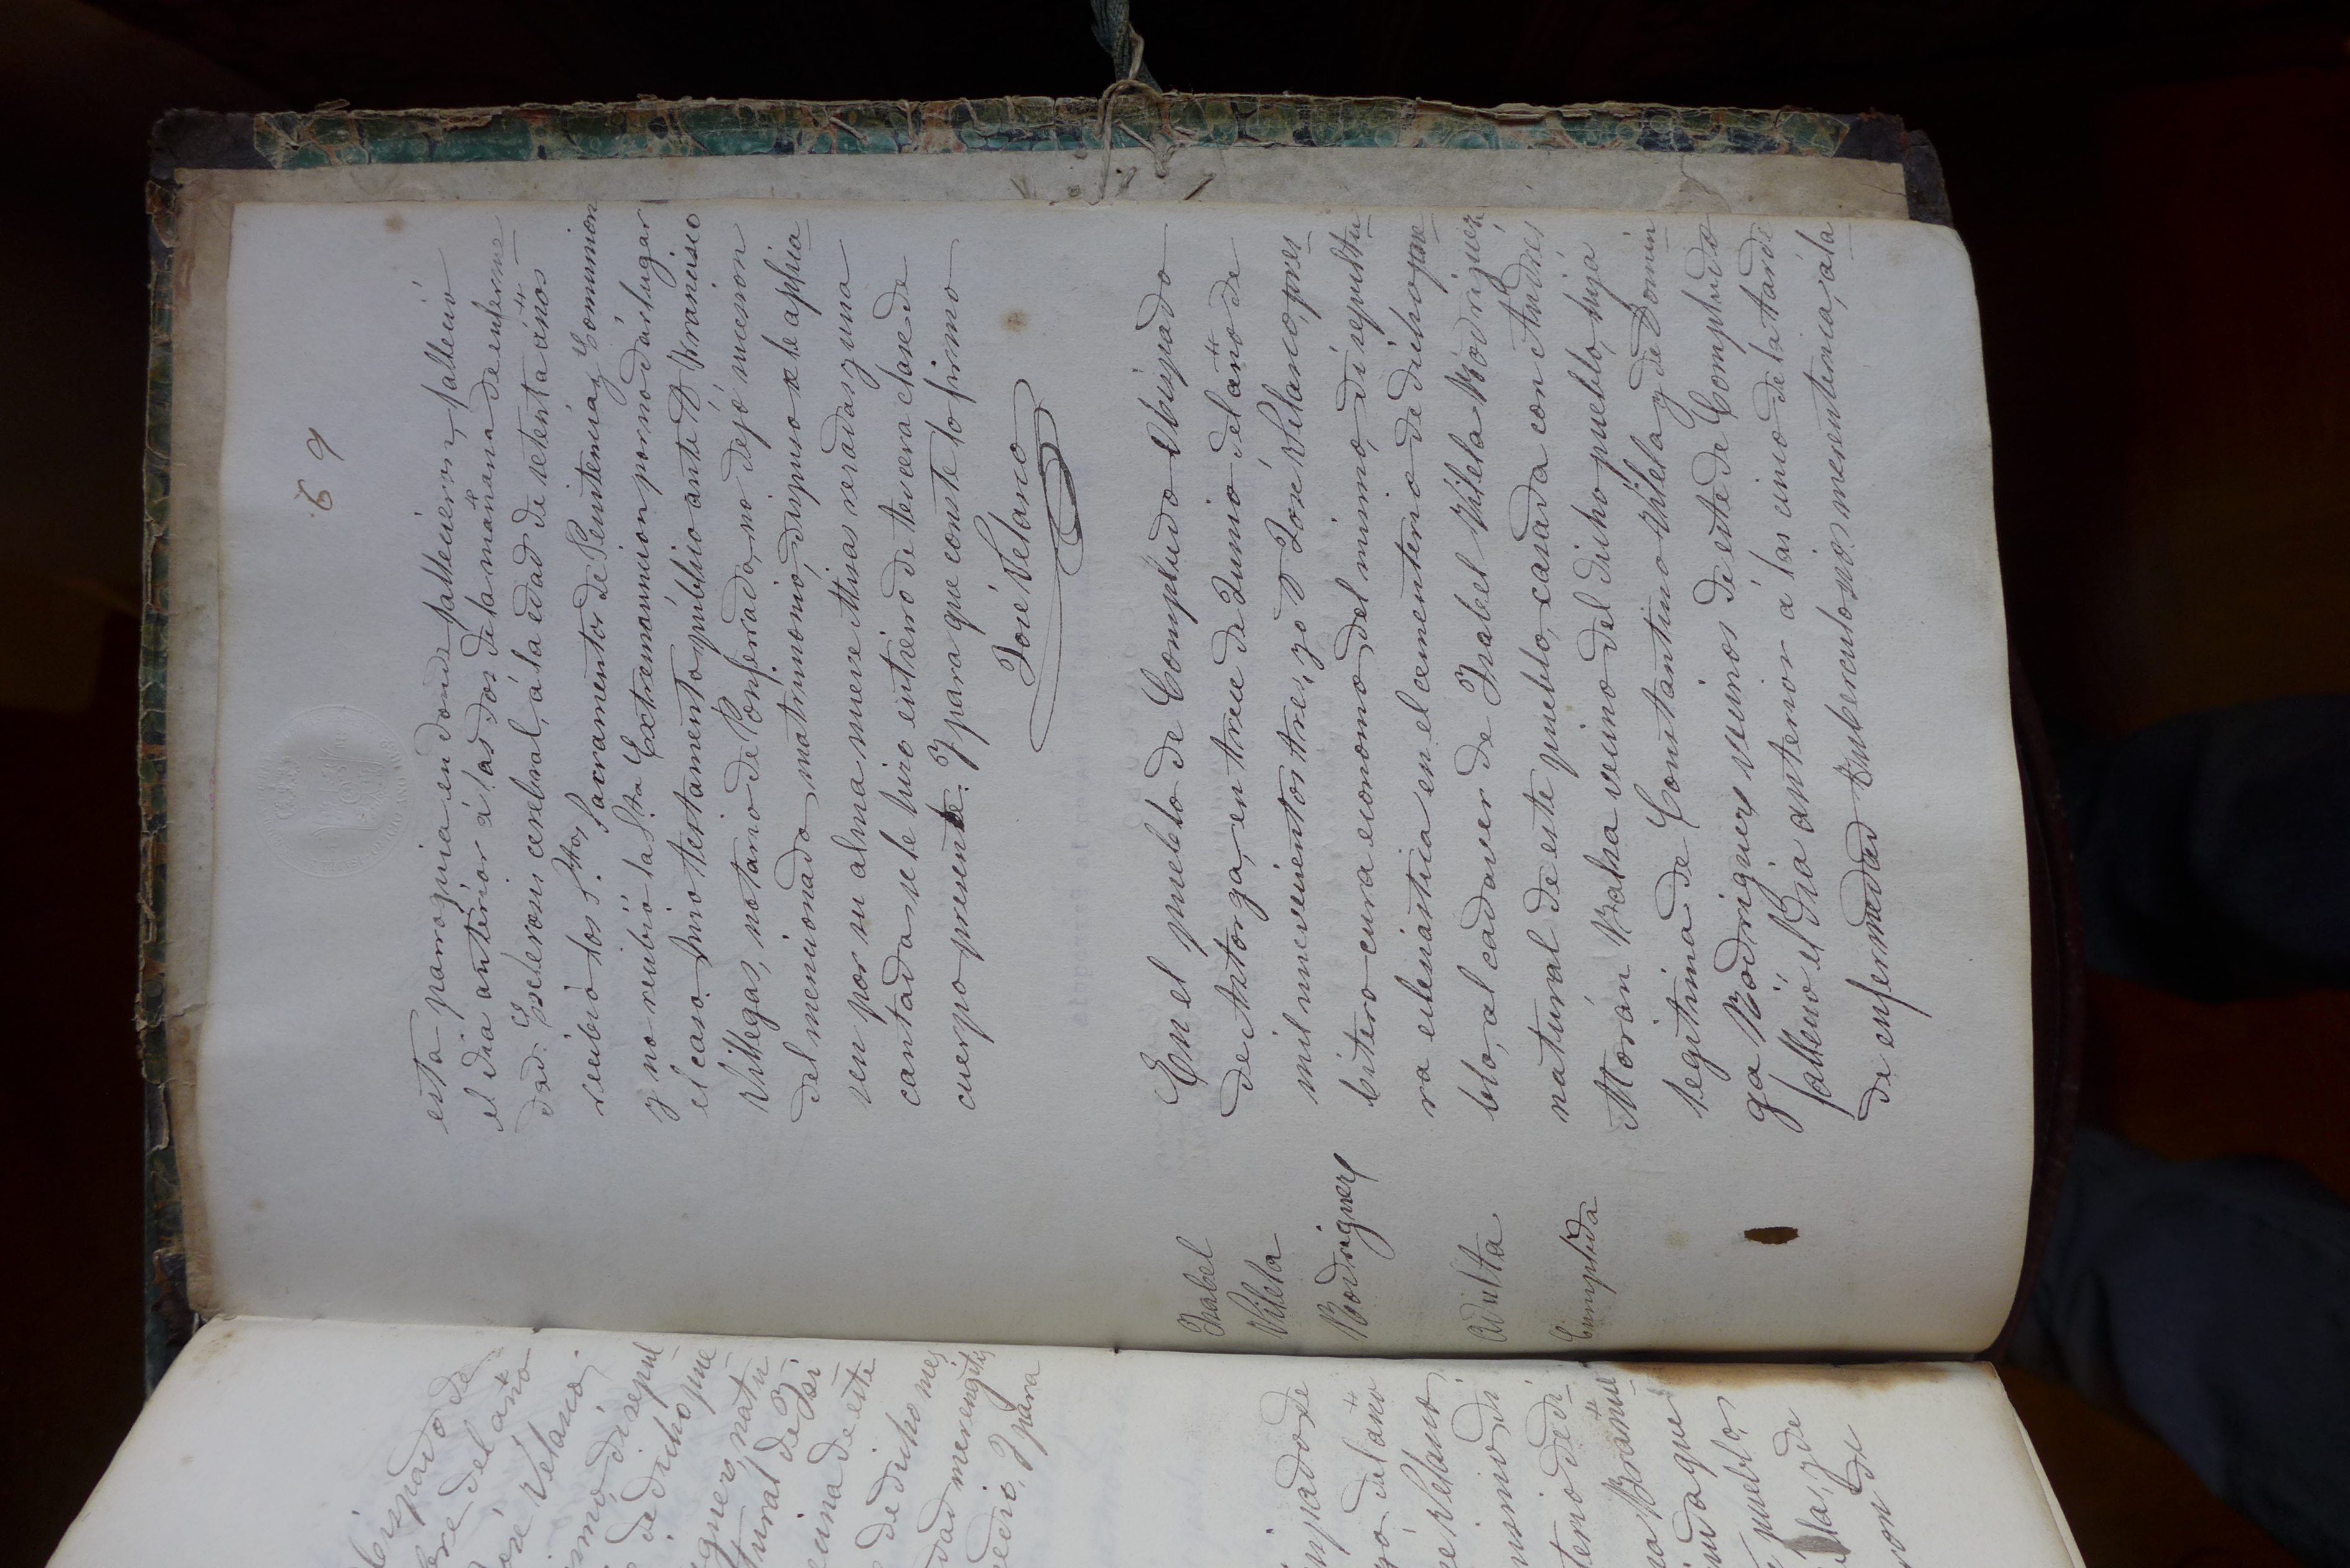 69
esta parroquia en donde fallecieron, falleció
el dia antérior á las dos de la mañana de enferme
dad Esclerosis cerebral, á la edad de setenta años
recibió los S.tos Sacramentos de Penitencia y Comunion
y no recibió la S.ta Extremaunnion por no dár lugar
el caso. hizo testamento público ante D Francisco
Villegas, notario de Ponferrada, no dejó sucesion
del mencionado matrimonio, dispuso se le aplica
sen por su alma nueve Misas rezadas y una
cantada se le hizo entierro de tercera clase de
cuerpo presente. Y para que conste lo firmo
José Velasco
Isabel
Vilela
Rodriguez
Adulta
Cumplida
En el pueblo de Compludo Obispado
de Astorga, en trece de Junio del año de
mil nuevecientos tres, yo D José Velasco, pres
bitero cura economo del mismo, dí sepultu
ra eclesiastica en el cementerio de dicho pue
blo, al cadaver de Isabel Vilela Rodriguez
naturál de este pueblo, casada con Andrés
Morán vecino del dicho pueblo, hija
legitima de Constantino Vilela y de Domin
ga Rodriguez vecinos de este de Compludo
falleció el dia anterior á las cinco de la tarde
de enfermedad tuberculosis mesenterica, á la
Obispado de
bre del año
José Velasco.
mismo dí sepul
de dicho pue
natu
tural de
vecina de este
de dicho mes
dad meningitis
Y para
Obispado de
del año
Velasco
mismo dí
terio de di
que
pueblo
y de